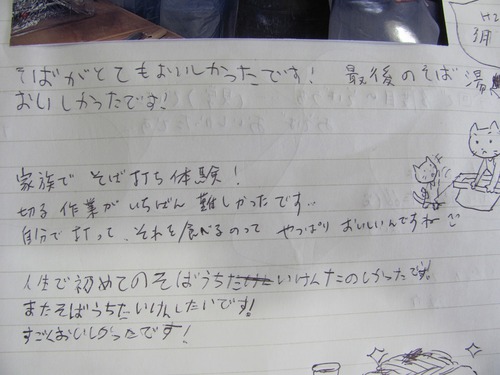 そばがとてもおいしかったです! 最後のそば湯
おいしかったです!
家族で そば打ち体験!
切る作業がいちばん難しかったです..
自分で打って、それを食べるのって やっぱりおいしいんですね
人生で初めてのそばうちたいけんたのしかったです!
またそばうちたいけんしたいです!
すごくおいしかったです!